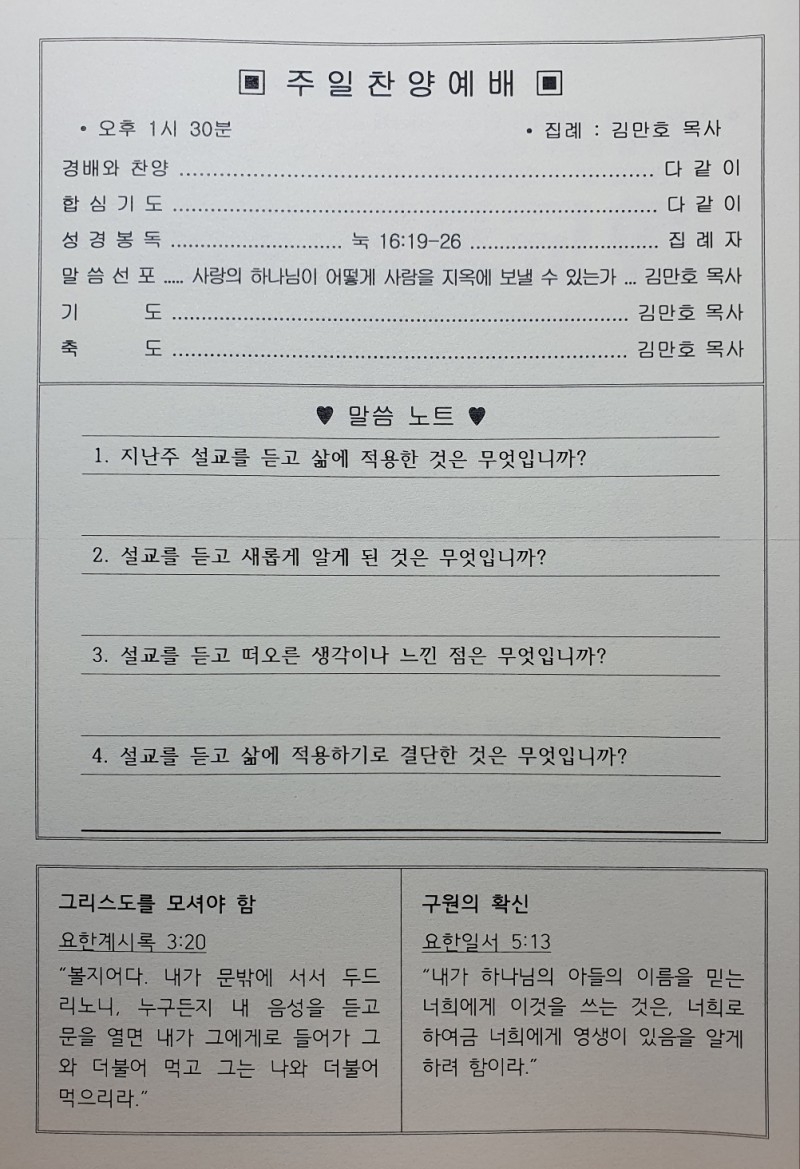 ▣ 주 일 찬 양 예 배 ▣
• 오후 1시 30분 • 집례 : 김만호 목사
경배와 찬양 ........................................ 다 같 이
합 심 기 도 ........................................ 다 같 이
성 경 봉 독 .................... 눅 16:19-26 .................... 집 례 자
말 씀 선 포 ..... 사랑의 하나님이 어떻게 사람을 지옥에 보낼 수 있는가 ... 김만호 목사
기 도 ........................................ 김만호 목사
축 도 ........................................ 김만호 목사
♥ 말씀 노트 ♥
1. 지난주 설교를 듣고 삶에 적용한 것은 무엇입니까?
2. 설교를 듣고 새롭게 알게 된 것은 무엇입니까?
3. 설교를 듣고 떠오른 생각이나 느낀 점은 무엇입니까?
4. 설교를 듣고 삶에 적용하기로 결단한 것은 무엇입니까?
그리스도를 모셔야 함
요한계시록 3:20
“볼지어다. 내가 문밖에 서서 두드
리노니, 누구든지 내 음성을 듣고
문을 열면 내가 그에게로 들어가 그
와 더불어 먹고 그는 나와 더불어
먹으리라.”
구원의 확신
요한일서 5:13
“내가 하나님의 아들의 이름을 믿는
너희에게 이것을 쓰는 것은, 너희로
하여금 너희에게 영생이 있음을 알게
하려 함이라.”